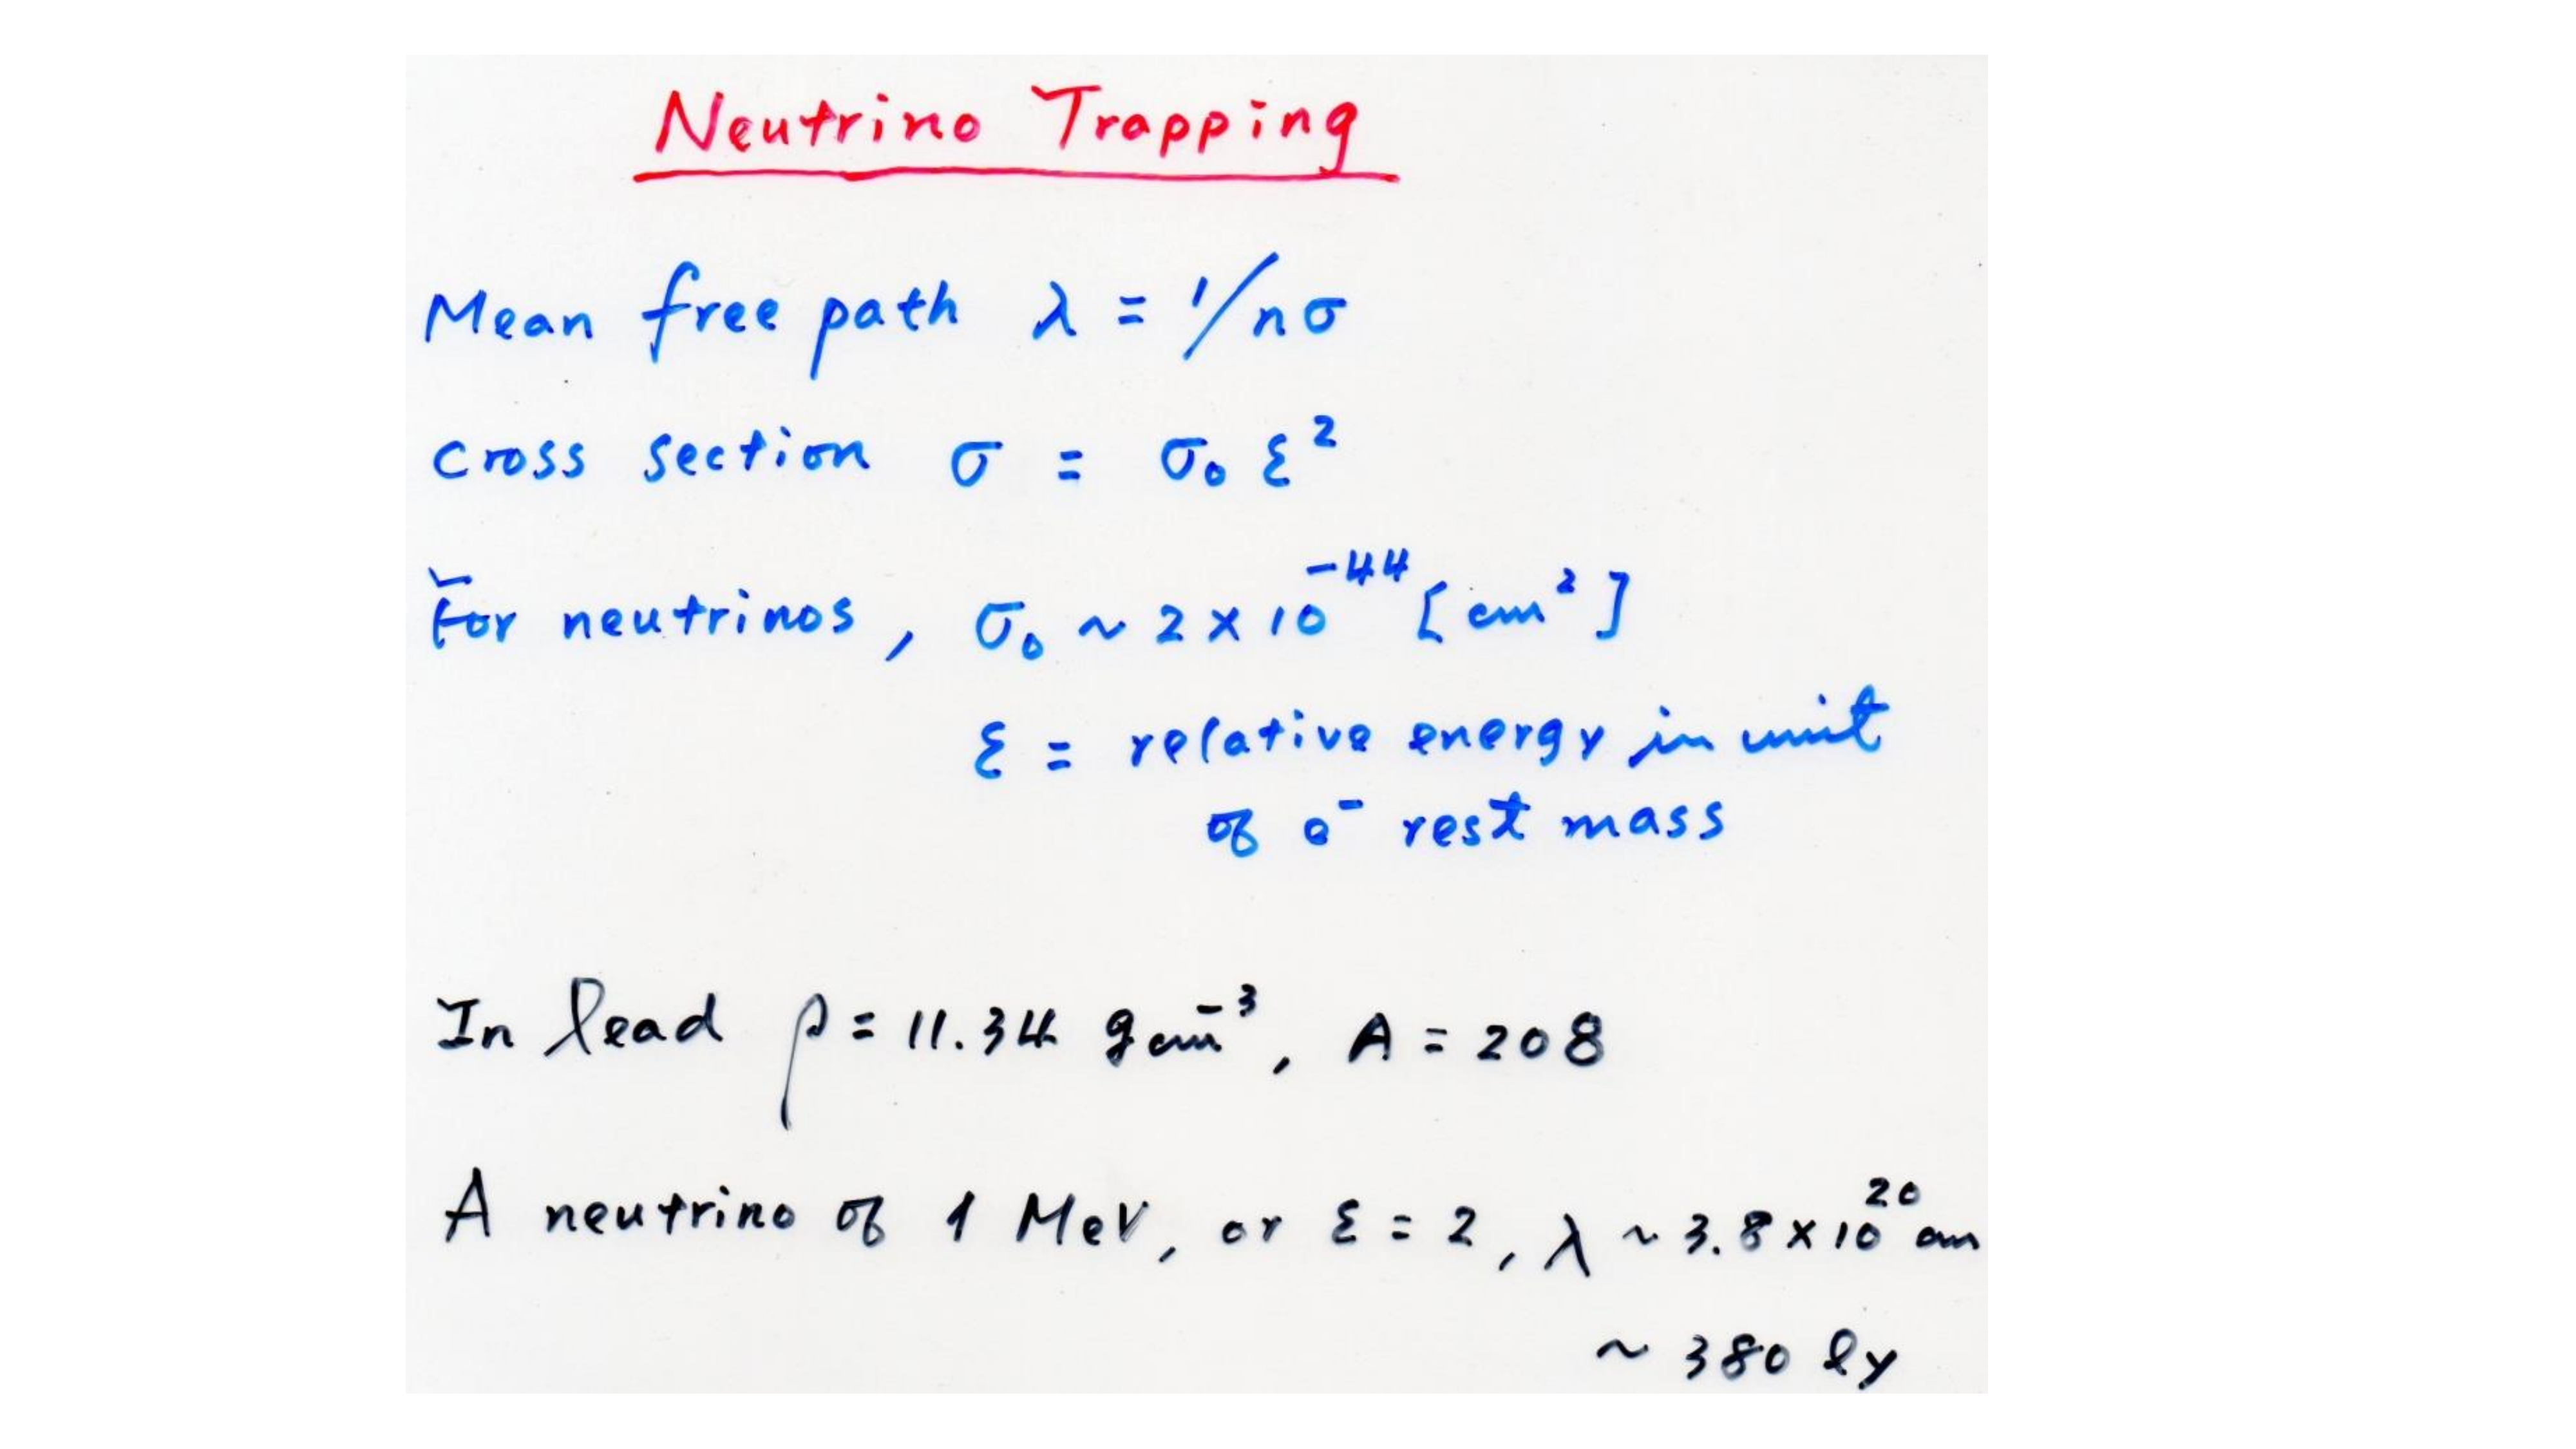 Neutrino Trapping
Mean free path λ = 1/nσ
cross section σ = σ₀ ε²
For neutrinos, σ₀ ~ 2 x 10⁻⁴⁴ [cm²]
ε = relative energy in unit
of e⁻ rest mass
In lead ρ = 11.34 g cm⁻³, A = 208
A neutrino of 1 MeV, or ε = 2, λ ~ 3.8 x 10²⁰ cm
~ 380 ly